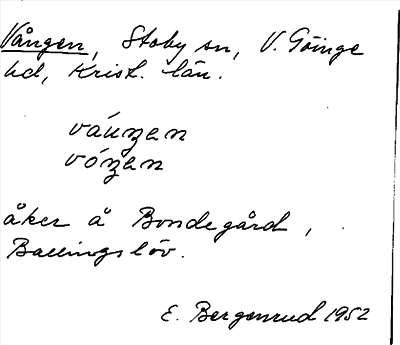 Vången, Stoby sn, V. Göinge
hd, Krist. län.
váuŋen
vóŋen
åker å Bondegård,
Ballingslöv.
E. Bergenrud 1952